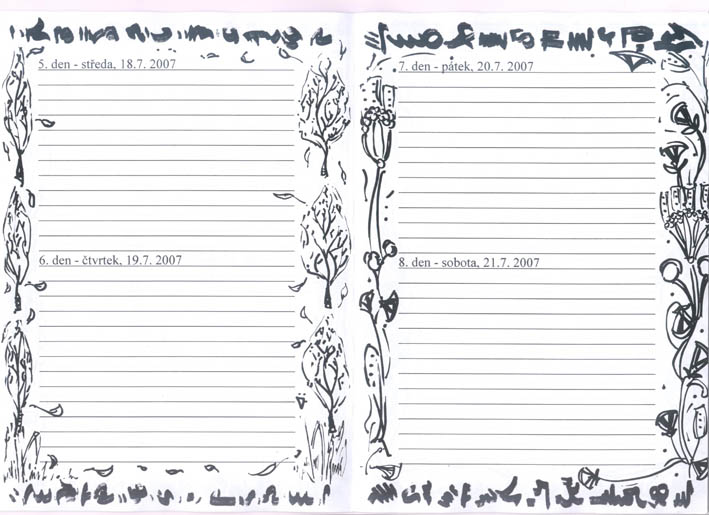 5. den - středa, 18.7. 2007
6. den - čtvrtek, 19.7. 2007
7. den - pátek, 20.7. 2007
8. den - sobota, 21.7. 2007